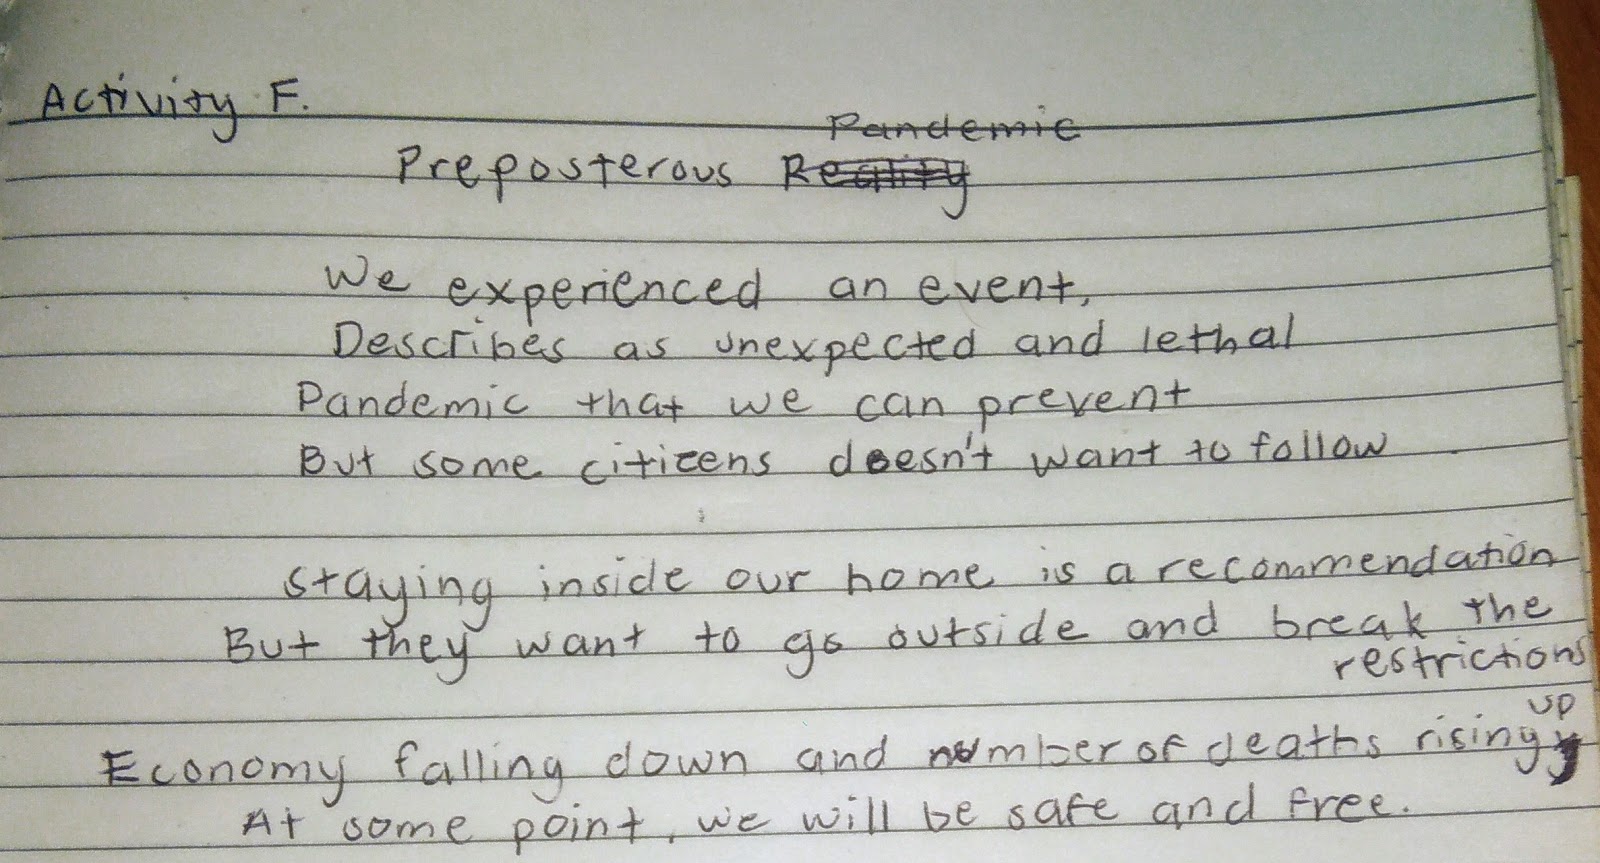 Activity F.
Pandemic
Preposterous Reality
We experienced an event,
Describes as unexpected and lethal
Pandemic that we can prevent
But some citizens doesn't want to follow
Staying inside our home is a recommendation
But they want to go outside and break the
restrictions
up
Economy falling down and number of deaths rising
At some point, we will be safe and free.